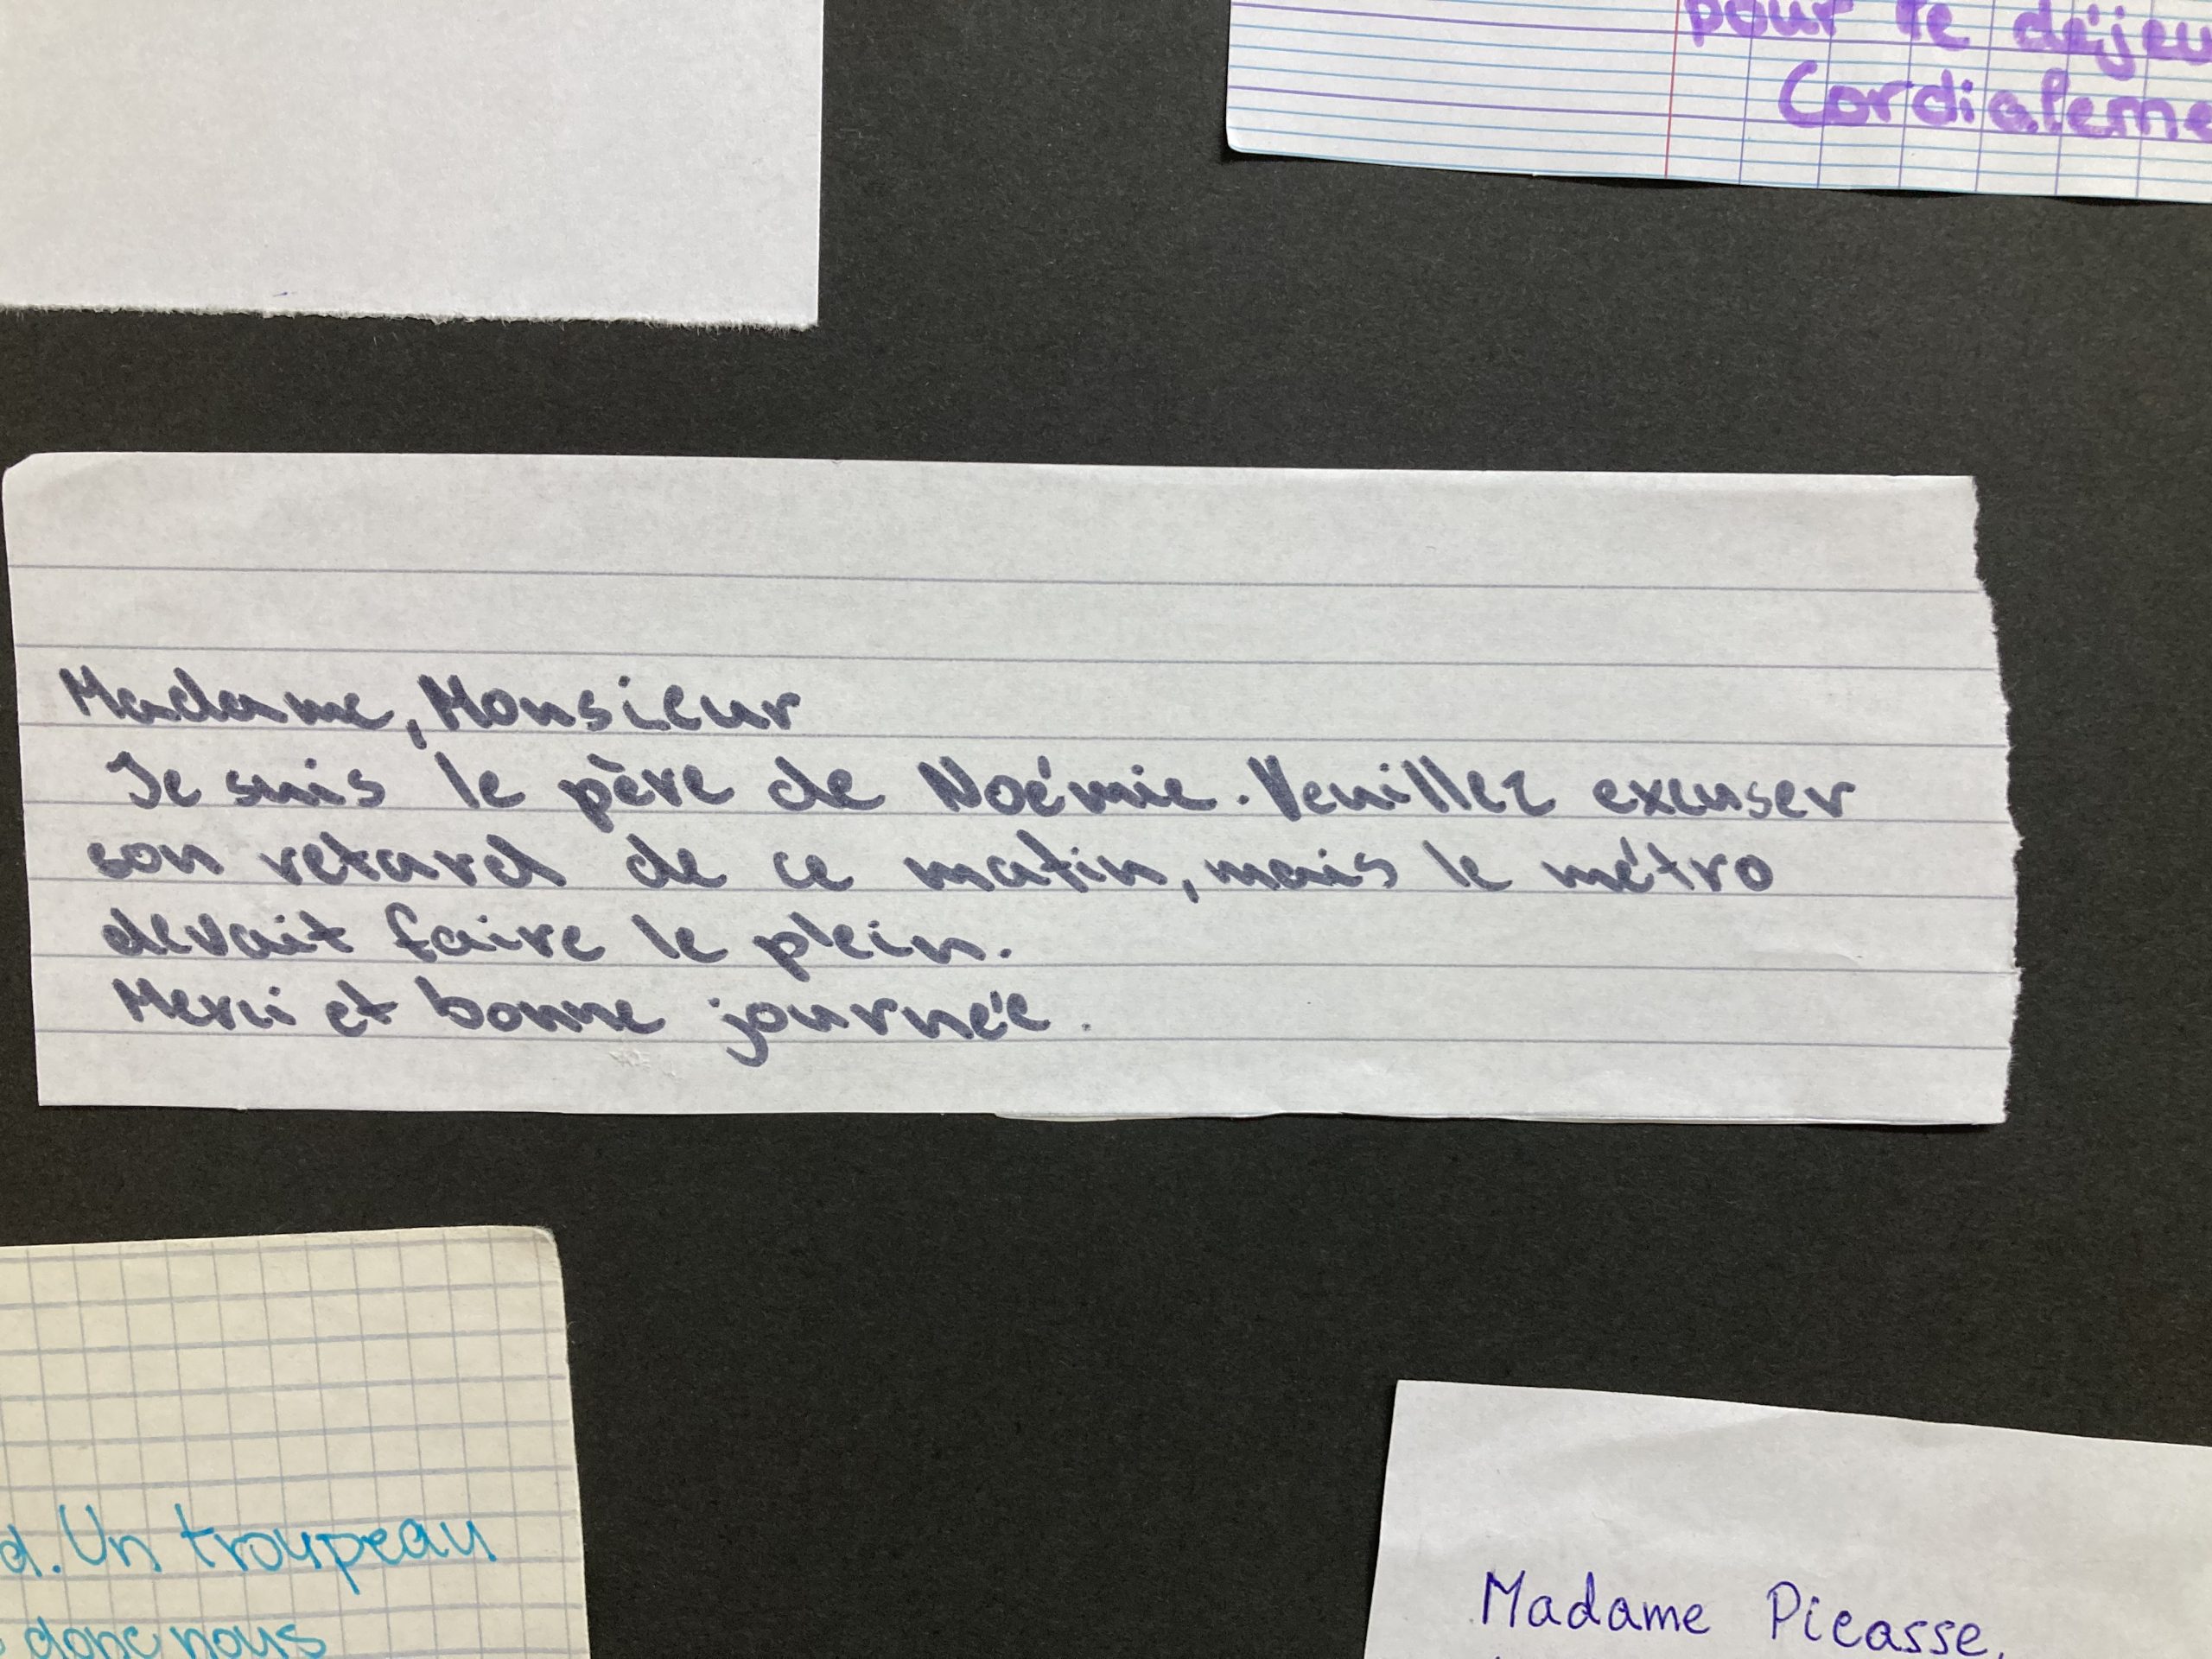 pour le
Cordialeme
Madame, Monsieur
Je suis le père de Noémie. Veuillez excuser
son retard de ce matin, mais le métro
devait faire le plein.
Merci et bonne journée.
d. Un troupeau
donc nous
Madame Picasse,